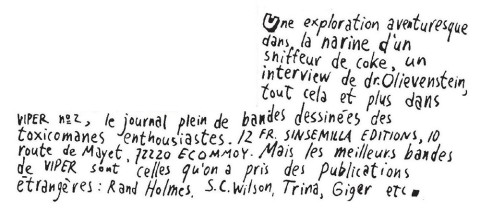 Une exploration aventuresque
dans la narine d'un
sniffeur de coke, un
interview de dr. Olievenstein,
tout cela et plus dans
VIPER nº2, le journal plein de bandes dessinées des
toxicomanes enthousiastes. 12 FR. SINSEMILLA EDITIONS, 10
route de Mayet, 72220 ECOMMOY. Mais les meilleurs bandes
de VIPER sont celles qu'on a pris des Publications
étrangères: Rand Holmes, S.C. Wilson, Trina, Giger etc.